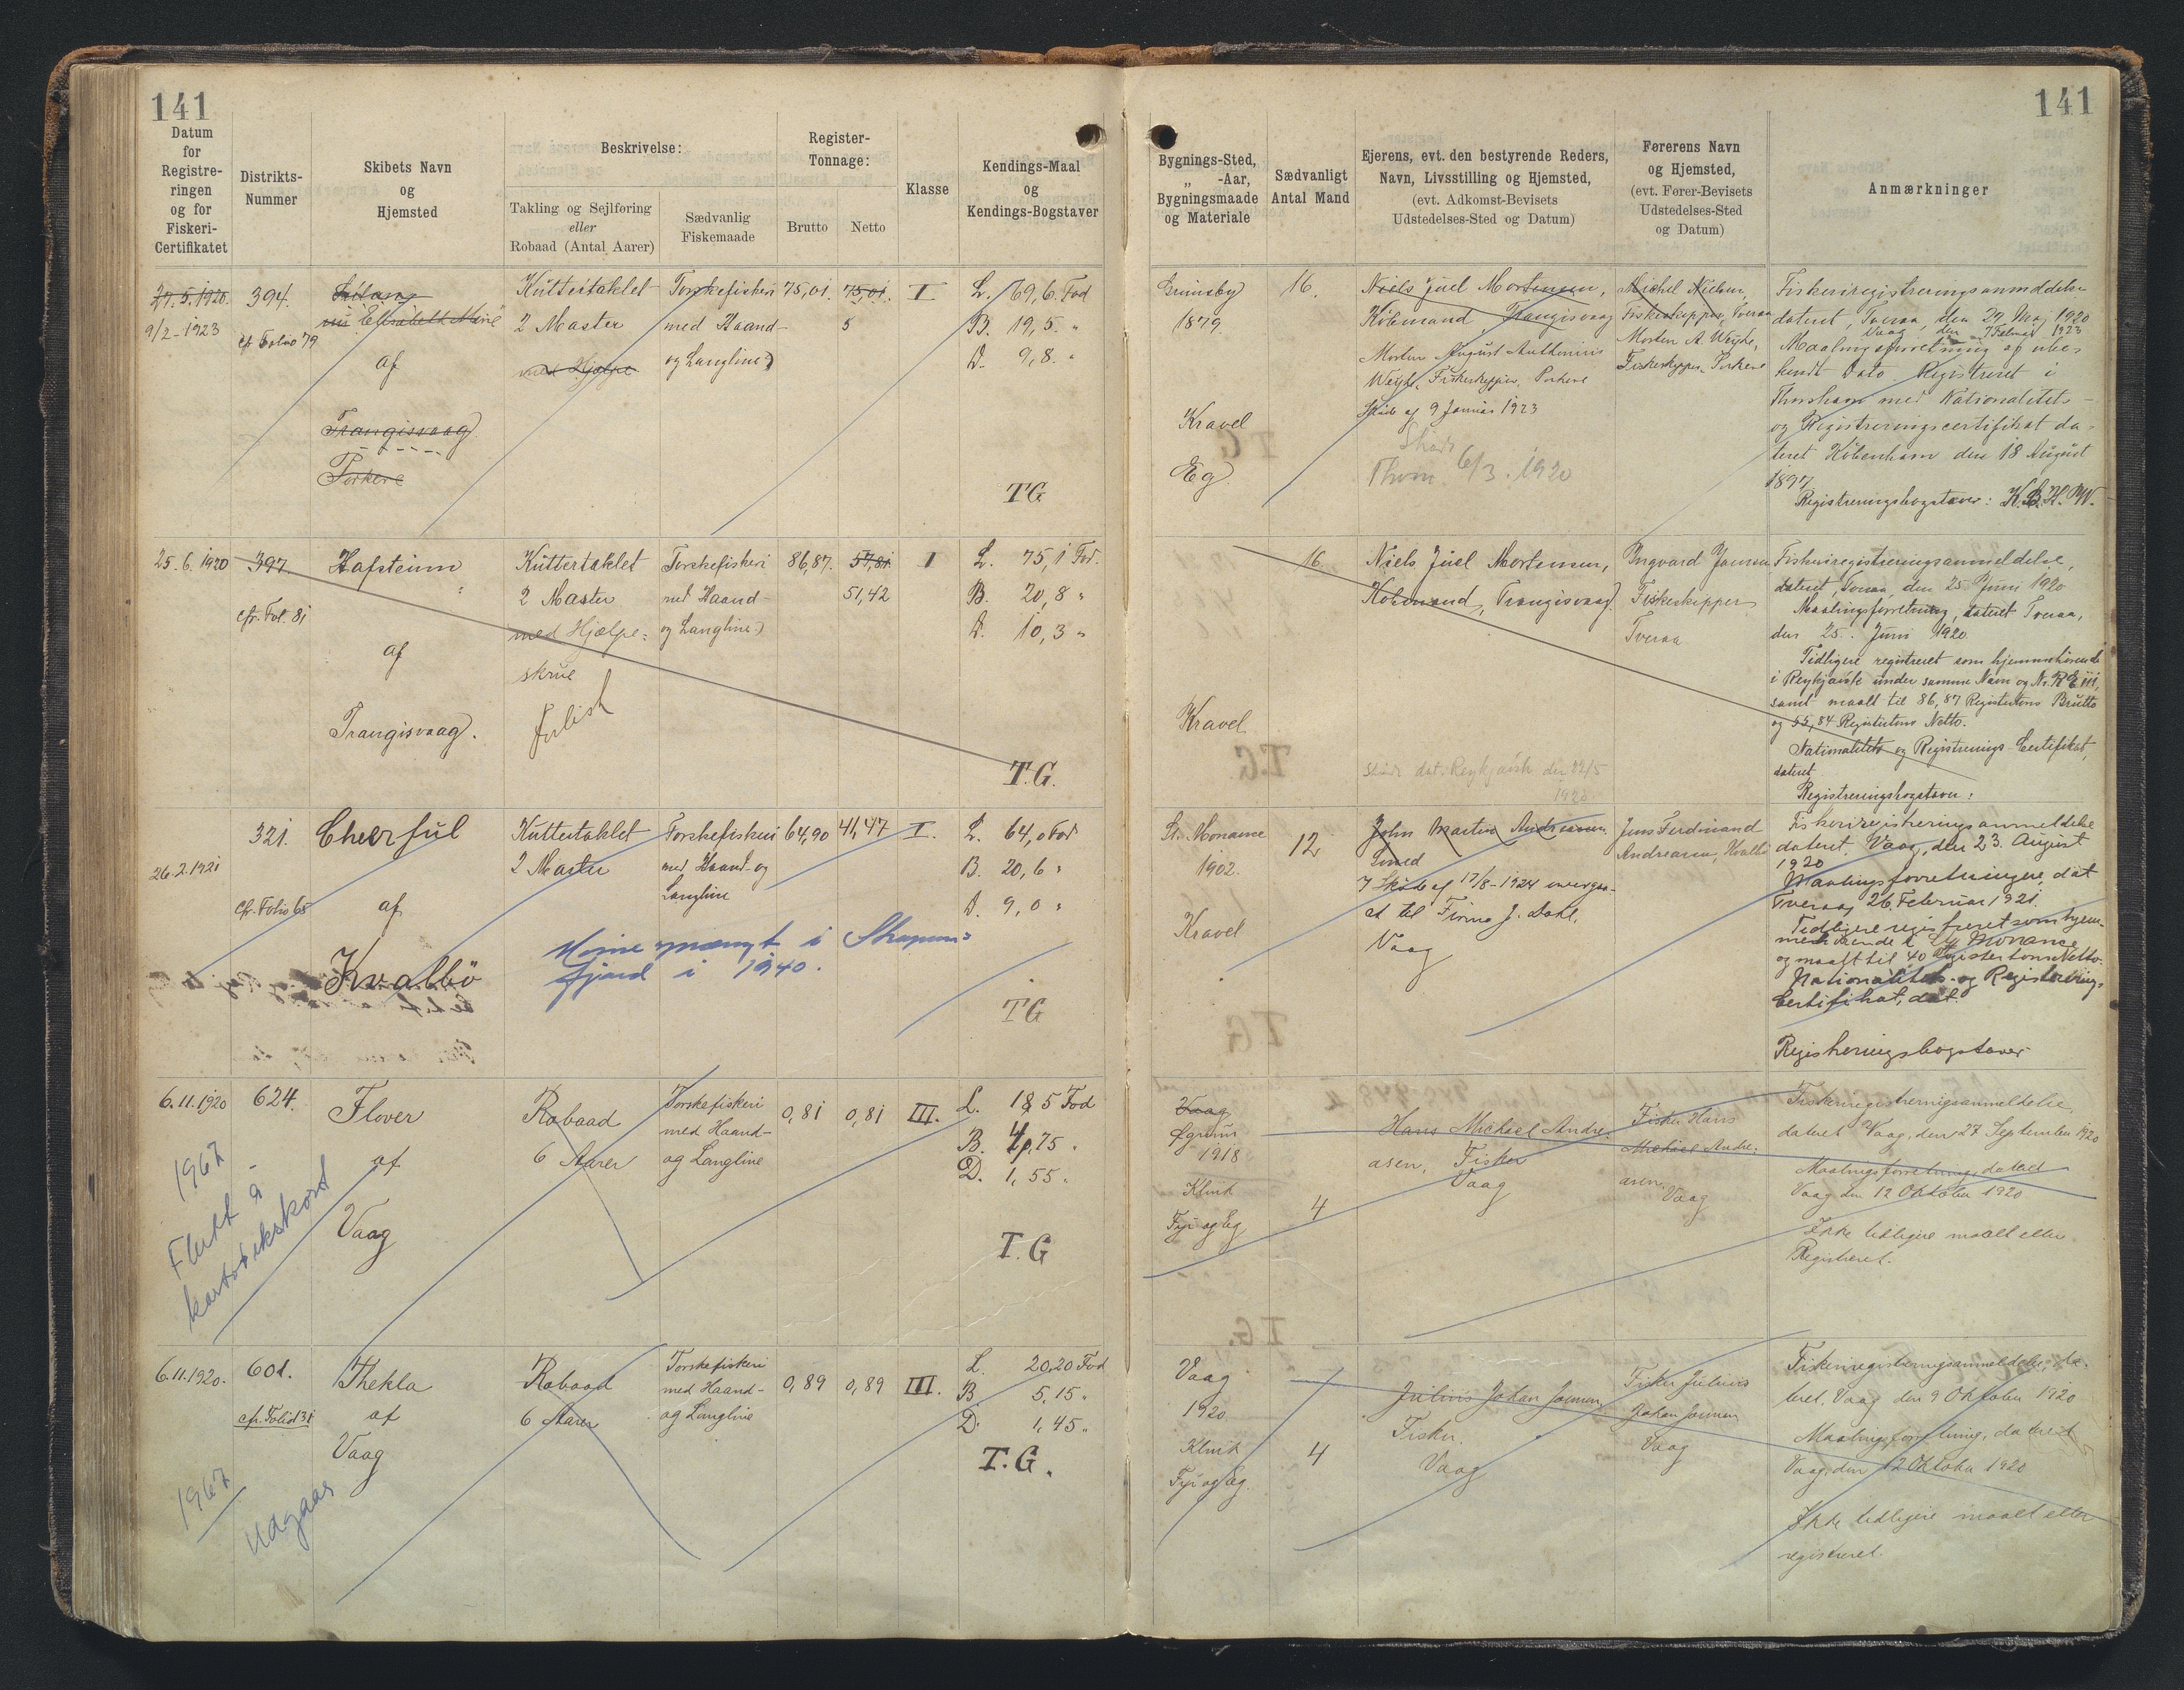 141
141
Datum
for
Registre-
ringen
og for
Fiskeri-
Certifikatet
Distrikts-
Nummer
Skibets Navn
og
Hjemsted
Beskrivelse:
Takling og Sejlføring
eller
Robaad (Antal Aarer)
Sædvanlig
Fiskemaade
Register-
Tonnage:
Brutto
Netto
Klasse
Kendings-Maal
og
Kendings-Bogstaver
Bygnings-Sted,
„ -Aar,
Bygningsmaade
og Materiale
Sædvanligt
Antal Mand
Ejerens, evt. den bestyrende Reders,
Navn, Livsstilling og Hjemsted,
(evt. Adkomst-Bevisets
Udstedelses-Sted og Datum)
Førerens Navn
og Hjemsted,
(evt. Fører-Bevisets
Udstedelses-Sted
og Datum)
Anmærkninger
29.5.1920.
9/2-1923
394.
cfr Folio 79
nu Elisabeth
af
Trangisvaag
Porkere
Kuttertaklet
2 Master
med Hjælpe
Torskefiskeri
med Haand-
og Langline
75,01.
75,01.
5
I
L. 69,6. Fod
B. 19,5. "
D. 9,8. "
TG
Grimsby
1879.
Kravel
Eg
16.
Niels Juel Mortensen,
Købmand, Trangisvaag
Morten August
Fiskeskipper, Porkere
Skøde af 9 Januar 1923
Skøde
Thorsh. 6/3. 1920
Michel Nielsen,
Fiskeskipper, Tveraa
Morten A.
Fiskeskipper, Porkere
Fiskeriregistreringsanmeldelse
dateret, Tveraa, den 29 Maj 1920
Vaag den 7 Februar 1923
Maalingsforretning af ube-
kendt Dato. Registreret i
Thorshavn med Nationalitets-
og Registreringscertifikat da-
teret København den 18 August
1897
Registreringsbogstaver: K.B.H.W.
25.6.1920
397.
cfr. Fol. 81
Hafsteinn
af
Trangisvaag.
Kuttertaklet
2 Master
med Hjælpe-
skrue
forlist
Torskefiskeri
med Haand-
og Langline
86,87.
57,81
51,42
I
L. 75,1 Fod.
B. 20,8 "
D. 10,3 "
T.G.
Kravel
16.
Niels Juel Mortensen,
Købmand, Trangisvaag.
Skøde dat. Reykjavik den 22/5
1920
Ingvard Joensen
Fiskeskipper
Tveraa
Fiskeriregistreringsanmeldelse,
dateret, Tveraa, den 25 Juni 1920
Maalingsforretning, dateret Tveraa,
den 25. Juni 1920
Tidligere registreret som hjemmehørende
i Reykjavik under samme Navn og Nr. RE 111,
samt maalt til 86,87 Registertons Brutto
og 55,84 Registertons Netto.
Nationalitets og Registrerings-Certifikat,
dateret
Registreringsbogstaver:
26.2.1921
321.
cfr. Folio 65
Cheerful
af
Kvalbø
Kuttertaklet
2 Master
Torskefiskeri
med Haand- og
Langline
64,90
41,47
I.
L. 64,0 Fod
B. 20,6 "
D. 9,0 "
TG
Minesprængt i Skopuns-
fjord i 1940.
St. Monance
1902.
Kravel
12
John Martin Andreasen
Smed
7 Skøde af 17/8-1924 overgaa-
et til Firma J. Dahl,
Vaag
Jens Ferdinand
Andreasen, Kvalbø
Fiskeriregistreringsanmeldelse
dateret, Vaag, den 23. August
1920
Maalingsforretningen, dat
Tveraa, 26. Februar 1921.
Tidligere registreret som hjem-
mehørende i St. Monance
og maalt til 40 Registertons Netto.
Nationalitets- og Registrerings-
Certifikat, dat.
Registreringsbogstaver
6.11.1920
624.
Flover
af
Vaag
1967
Flutt á
kartotekskort
Robaad
6 Aarer
Torskefiskeri
med Haand-
og Langline
0,81
0,81
III.
L. 18,5 Fod
B. 4,75 "
D. 1,55 "
T.G
Vaag
Øgrunn
1918
Klink
Fyr og Eg
4
Hans Michael Andre-
asen, Fisker
Vaag
Fisker Hans
Michael Andre-
asen
Vaag
Fiskeriregistreringsanmeldelse,
dateret Vaag, den 27 September 1920
Maalingsforretning, dateret
Vaag den 12 Oktober 1920
Ikke tidligere maalt eller
Registreret.
6.11.1920.
601.
cfr. Folio 131
Thekla
af
Vaag
1967
Udgaar
Robaad
6 Aarer
Torskefiskeri
med Haand-
og Langline
0,89
0,89
III.
L. 20,20 Fod
B. 5,15 "
D. 1,45 "
T.G.
Vaag
1920
Klink
Fyr og Eg.
4
Julius Johan Joensen
Fisker.
Vaag
Fisker Julius
Johan Joensen
Vaag
Fiskeriregistreringsanmeldelse, da-
teret, Vaag den 9 Oktober 1920
Maalingsforretning, dateret
Vaag, den 12 Oktober 1920
Ikke tidligere maalt eller
registreret.